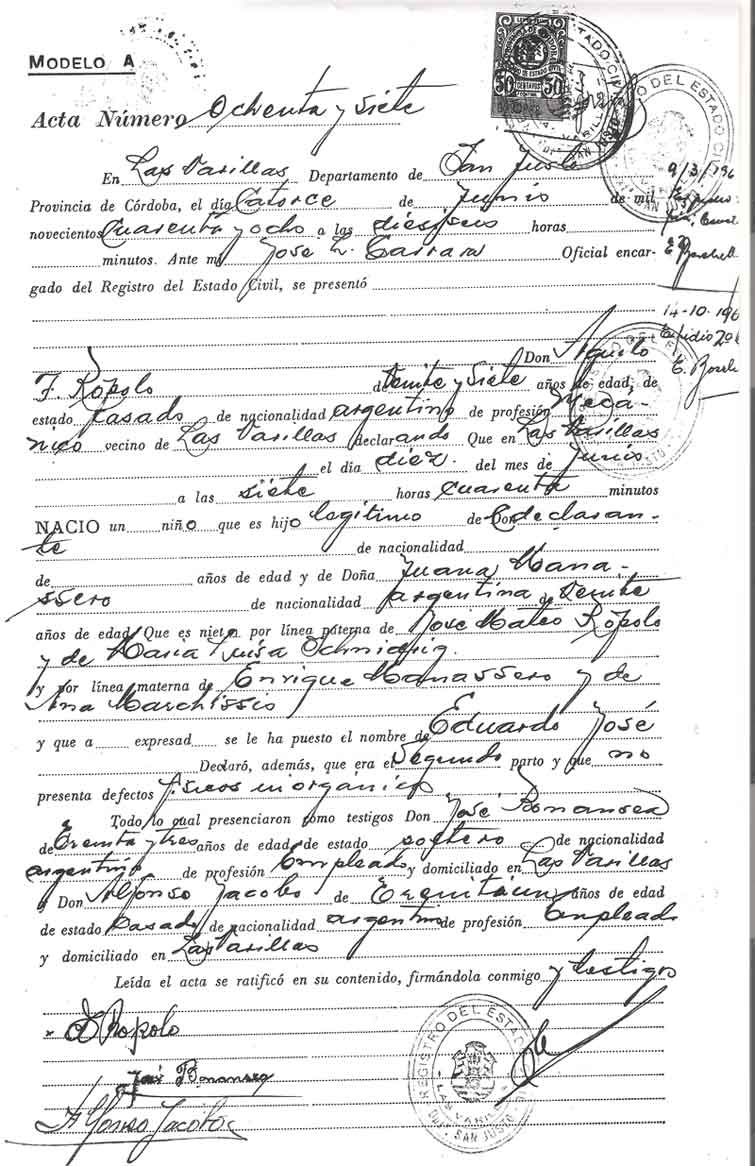 MODELO A
Acta Número Ochenta y siete
En Las Varillas Departamento de San Justo
Provincia de Córdoba, el día Catorce de Junio de mil
novecientos Cuarenta y ocho a las dieciseis horas
minutos. Ante mi José L. Carrara Oficial encar-
gado del Registro del Estado Civil, se presentó
Don
F. Rópolo de veinte y siete años de edad, de
estado casado de nacionalidad argentino de profesión Mecá-
nico vecino de Las Varillas declarando Que en Las Varillas
el día diez. del mes de Junio
a las siete horas cuarenta minutos
NACIO un niño que es hijo legítimo de Don declaran-
te de nacionalidad
de años de edad y de Doña Juana Mana-
ssero de nacionalidad argentina de veinte
años de edad Que es nieto por línea paterna de José Mateo Rópolo
y de María Luisa
y por línea materna de Enrique Manassero y de
Ana Marchissio
y que a expresad se le ha puesto el nombre de Eduardo José
Declaró, además, que era el segundo parto y que no
presenta defectos físicos ni orgánicos
Todo lo cual presenciaron como testigos Don José Bonansea
de treinta y tres años de edad, de estado soltero de nacionalidad
argentino de profesión Empleado y domiciliado en Las Varillas
y Don Alfonso Jacobo de años de edad
de estado casado de nacionalidad argentino de profesión Empleado
y domiciliado en Las Varillas
Leída el acta se ratificó en su contenido, firmándola conmigo y testigos
Rópolo
José Bonansea
Alfonso Jacobo
50 CENTAVOS 50
REGISTRO DEL ESTADO CIVIL
9/3/196
14-10-196
Expidió 2º
REGISTRO DEL ESTADO
LAS VARILLAS
Dpto. SAN JUSTO